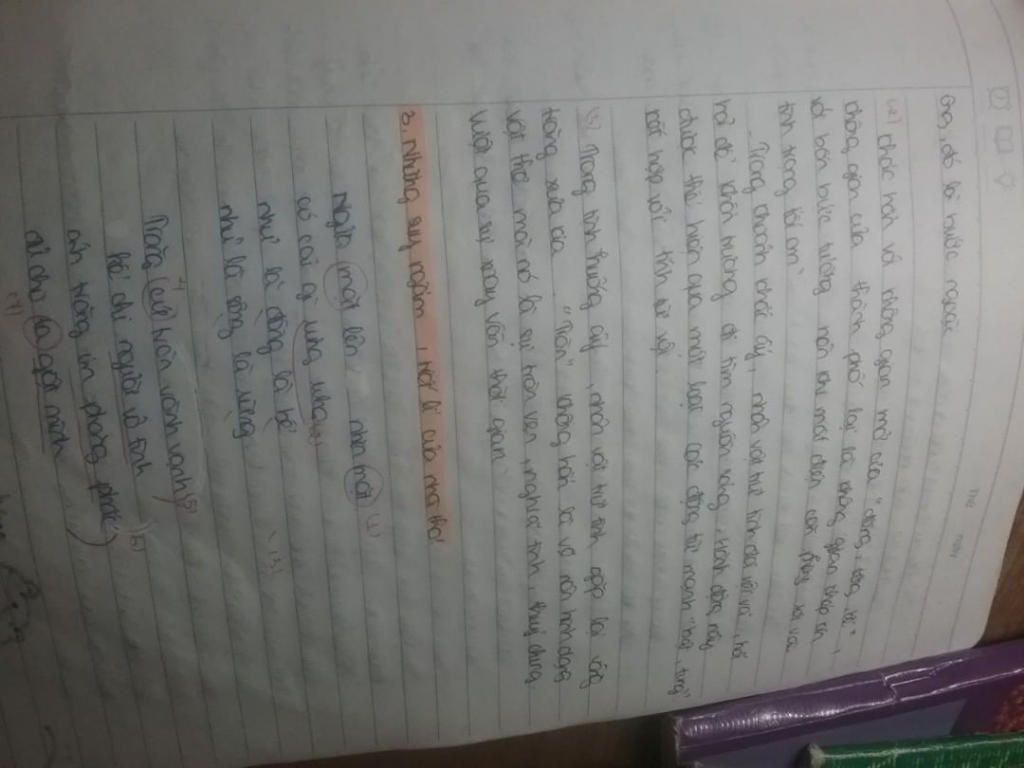 Thứ ngày
ông, đó là nước ngoài
(2) khác hẳn với không gian mở của "đồng, sông, bể",
không gian của thành phố lại là không gian khép kín
với bốn bức tường nên chỉ mất điện căn phòng
tối om"
Trong khoảnh khắc ấy, nhân vật trữ tình đã vội vã, hối
hả để khẩn trương đi tìm nguồn sáng, hành động này
được thể hiện qua một loạt các động từ mạnh "bật, tung"
kết hợp với tính từ vội
(3) Trong tình huống ấy, nhân vật trữ tình gặp lại vầng
trăng xưa kia "Tròn" không hỏi là vẻ hơn dạng
vật thể mà nó là sự tròn vẹn, nghĩa tình, thuỷ chung
vượt qua sự xoay vần thời gian
3, Những suy ngẫm, triết lí của nhà thơ
Ngửa mặt lên nhìn mặt (1)
có cái gì rưng rưng
như là đồng là bể
như là sông là rừng (3)
Trăng cứ tròn vành vạnh (5)
kể chi người vô tình
ánh trăng im phăng phắc (6)
đủ cho ta giật mình
(7)